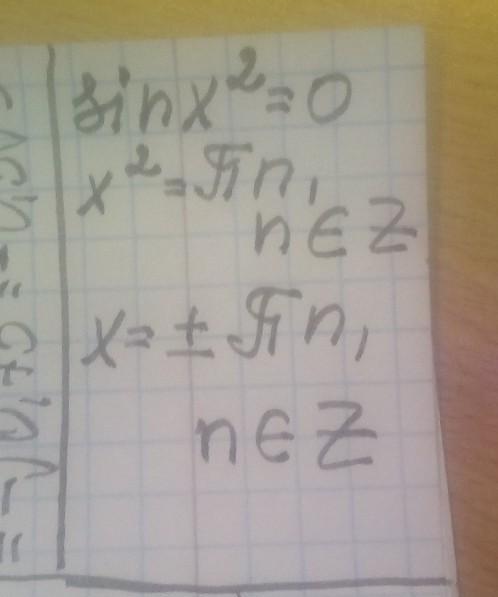 sin x² = 0
x² = πn,
n ∈ Z
x = ± πn,
n ∈ Z